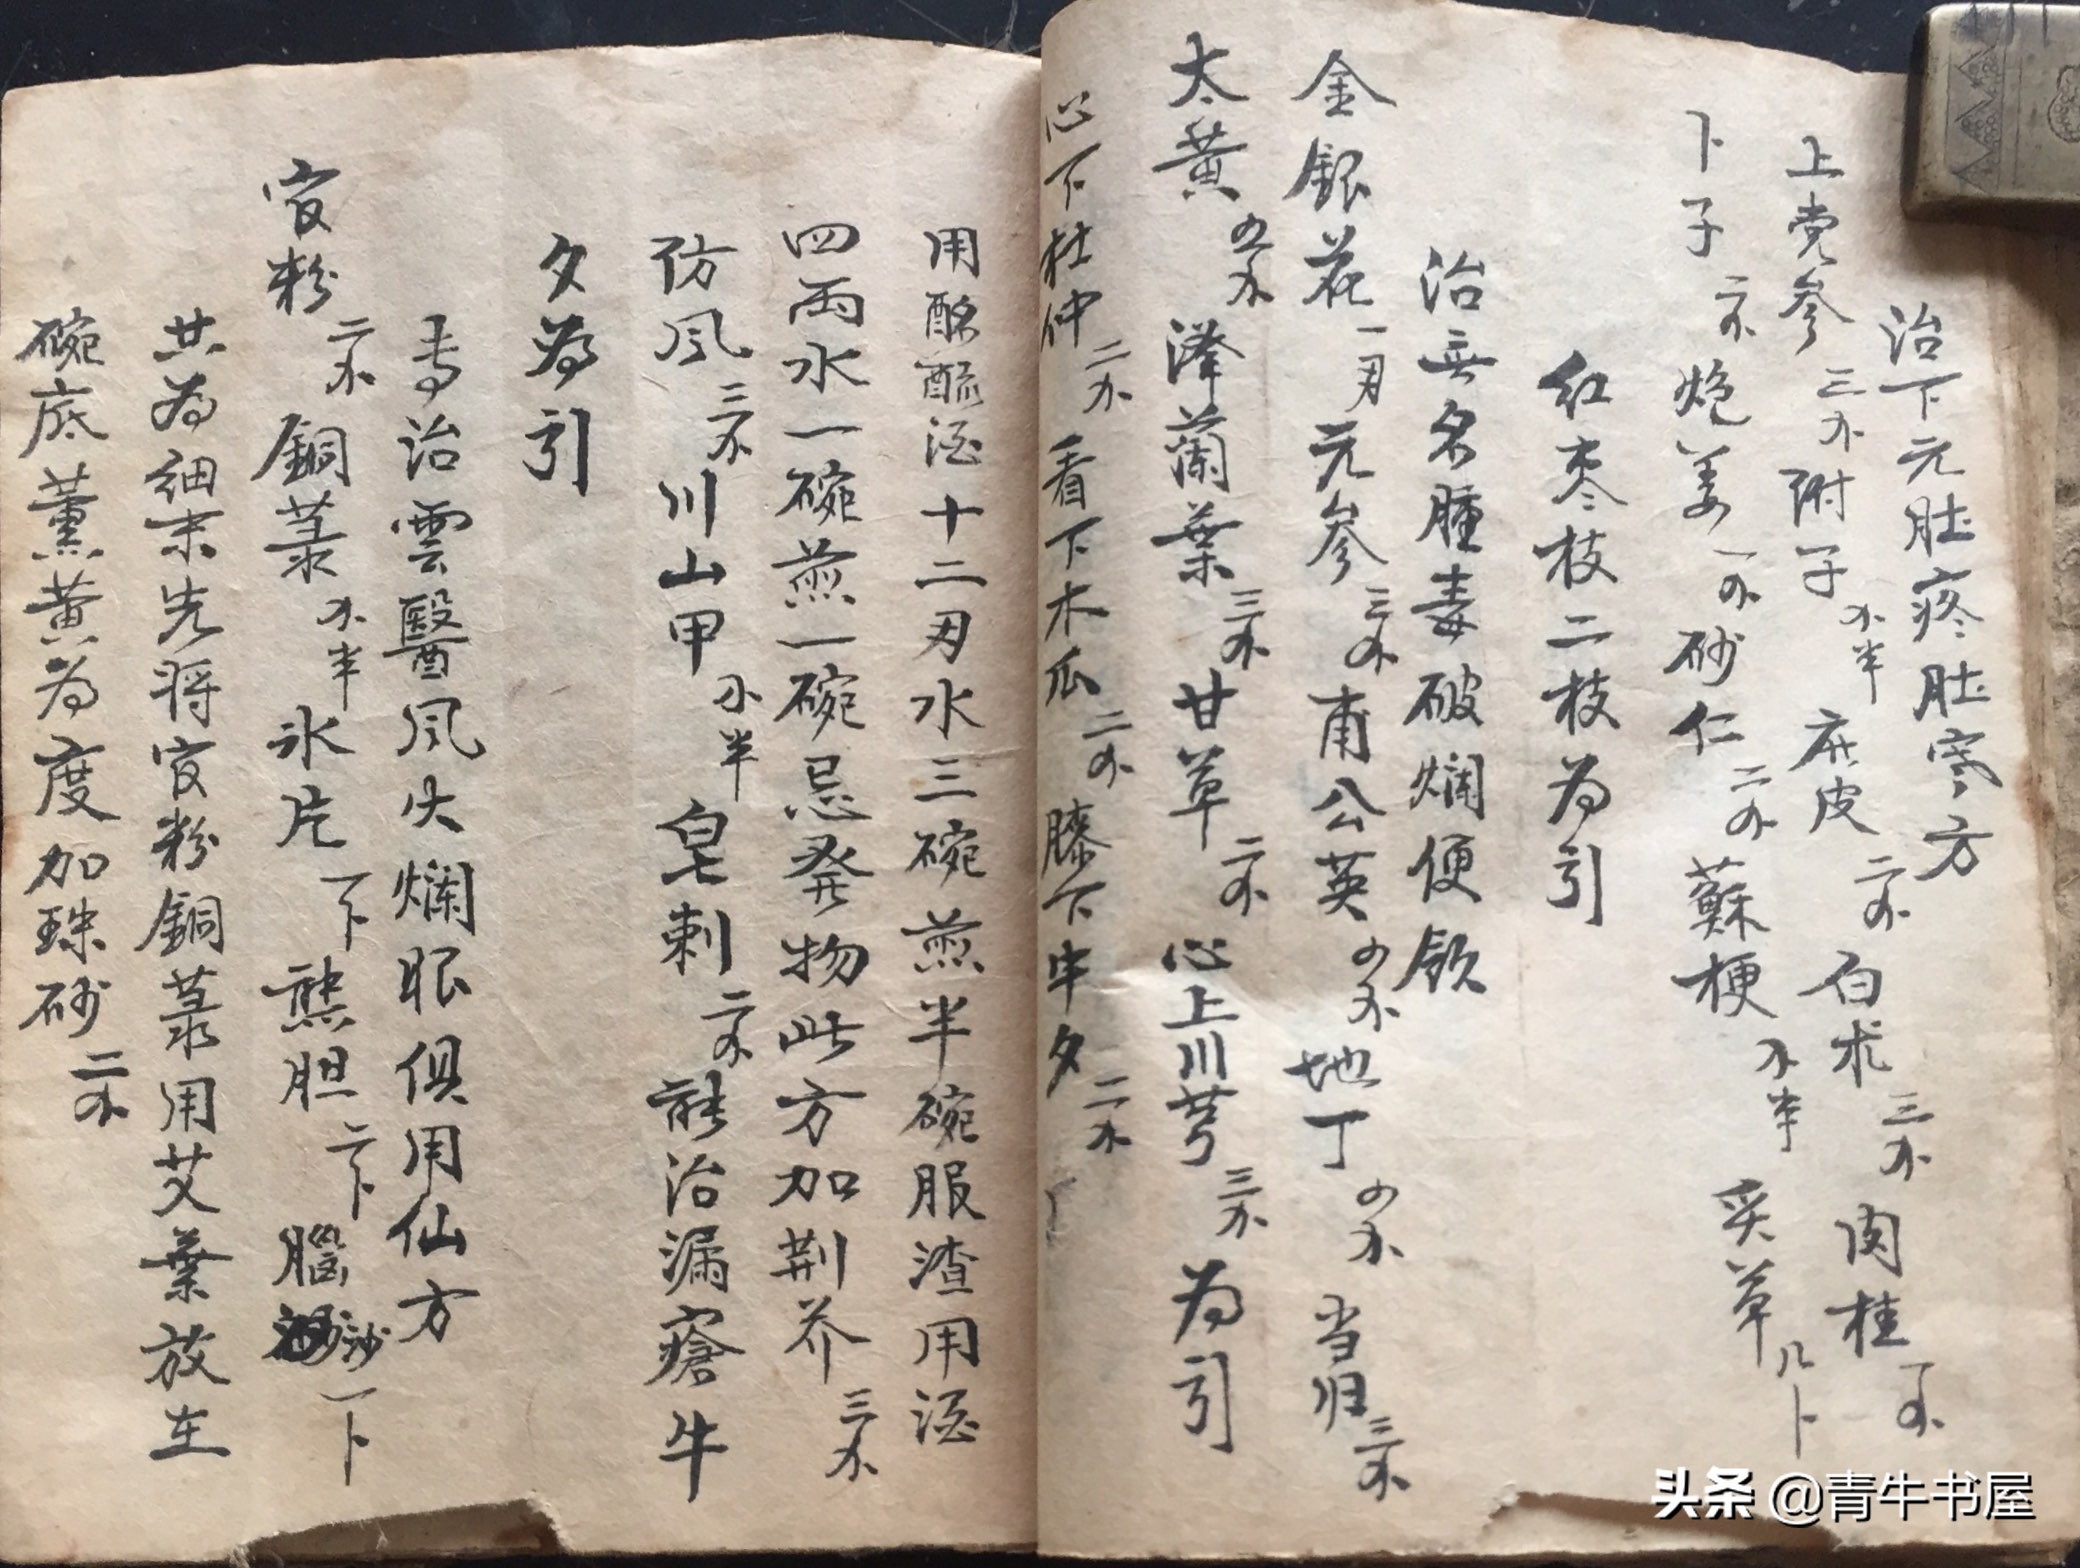 治下元肚疼肚寒方
上党参三不附子不半灰皮二不白朮三不肉桂一不
卜子二不炮姜一不砂仁二不蘇梗不半炙草几卜
红枣枝二枝为引
治無名腫毒破爛便飲
金銀花一刃元参三不甫公英四不地丁四不当归三不
太黃四不澤蘭葉三不甘草二不心上川芎三不为引
心下杜仲二不看下木瓜二不膝下牛夕二不
用酩醯酒十二刃水三碗煎半碗服渣用酒
四兩水一碗煎一碗忌發物此方加荆芥三不
仿风三不川山甲不半皂刺二不能治漏瘡牛
夕为引
专治雲醫风火爛眼俱用仙方
官粉二不銅菉不半氷片一卜熊胆二卜腦沙一卜
共为细末先将官粉銅菉用艾葉放在
碗底薰黄为度加珠砂二不
头条 @青牛书屋